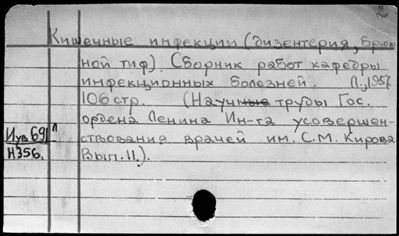 Кишечные инфекции (дизентерия, брюш
ной тиф). Сборник работ кафедры
инфекционных болезней. Л., 1957.
106 стр. (Научные труды Гос.
ордена Ленина Ин-та усовершен-
Иув 691 ствования врачей им. С.М. Кирова
Н356. Вып. 11.).